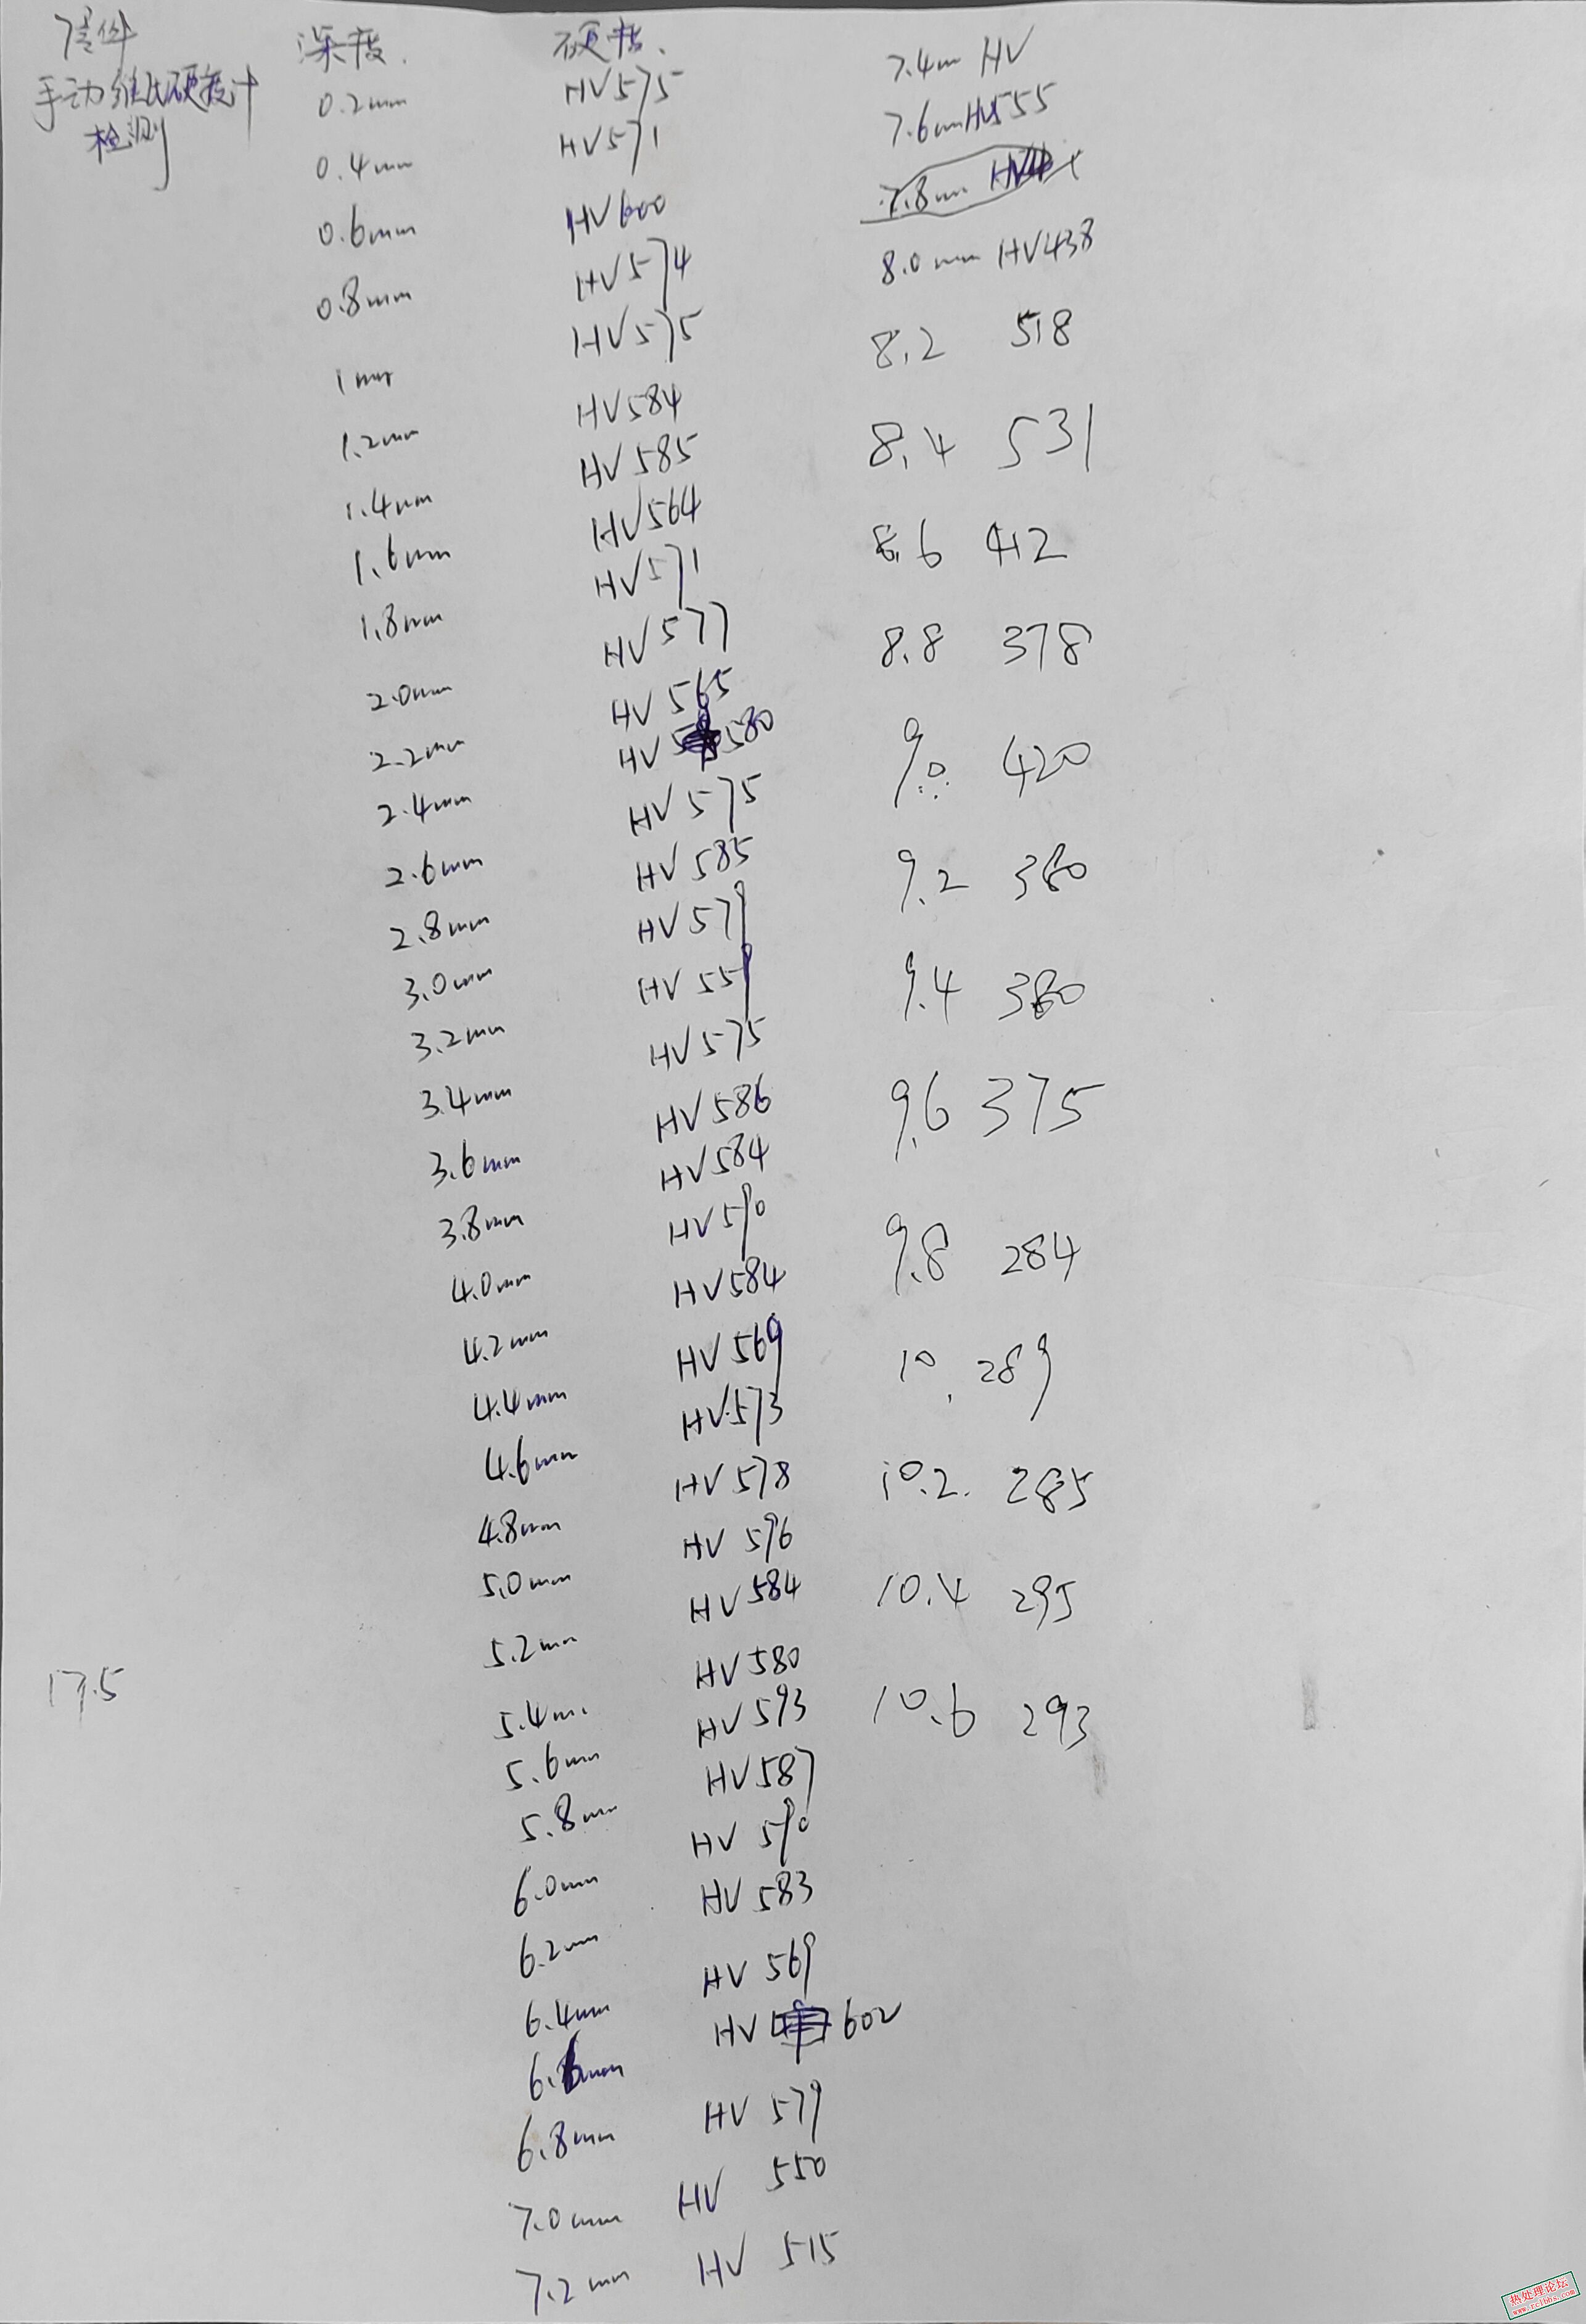 深度. 硬度.
手动维氏硬度计
检测
0.2mm HV575
0.4mm HV571
0.6mm HV600
0.8mm HV574
1mm HV575
1.2mm HV584
1.4mm HV585
1.6mm HV564
1.8mm HV571
2.0mm HV577
2.2mm HV565
2.4mm HV 580
2.6mm HV575
2.8mm HV585
3.0mm HV579
3.2mm HV559
3.4mm HV575
3.6mm HV586
3.8mm HV584
4.0mm HV590
4.2mm HV584
4.4mm HV569
4.6mm HV573
4.8mm HV578
5.0mm HV596
5.2mm HV584
5.4m. HV580
5.6mm HV593
5.8mm HV587
6.0mm HV590
6.2mm HV583
6.4mm HV569
6.6mm HV 602
6.8mm HV579
7.0mm HV 550
7.2mm HV 515
17.5
7.4mm HV
7.6mm HV555
7.8mm
8.0mm HV438
8.2 518
8.4 531
8.6 412
8.8 378
9.0 420
9.2 380
9.4 380
9.6 375
9.8 284
10. 289
10.2. 285
10.4 295
10.6 293
热处理论坛
www.rclbbs.com